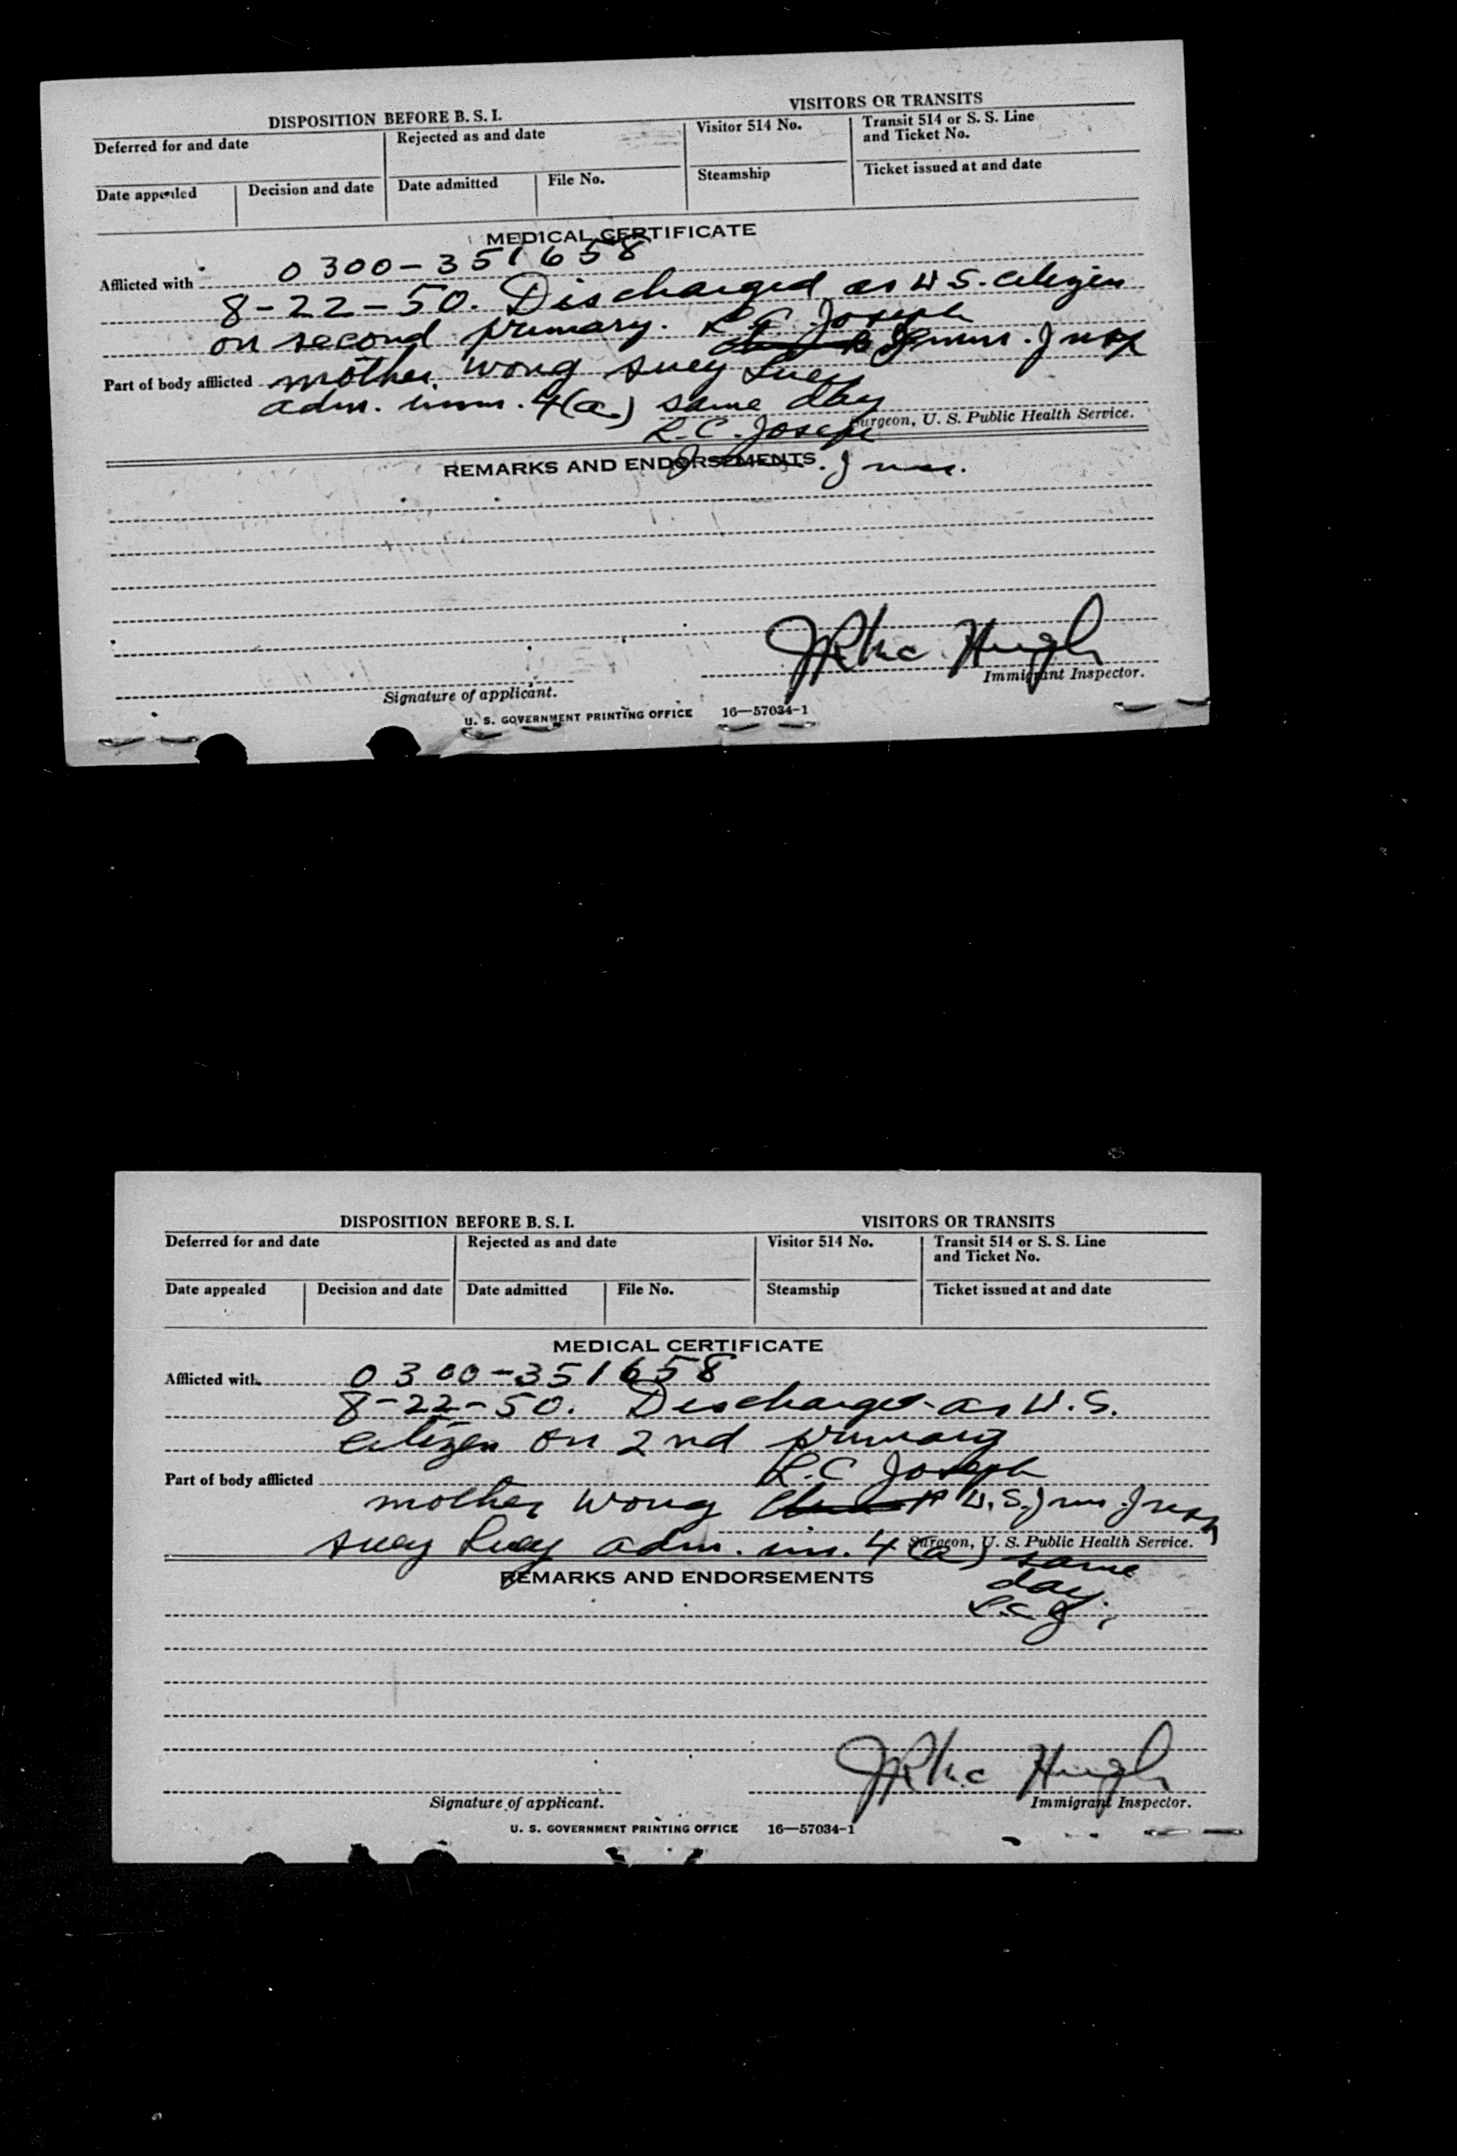 DISPOSITION BEFORE B. S. I.
VISITORS OR TRANSITS
Deferred for and date
Rejected as and date
Visitor 514 No.
Transit 514 or S. S. Line
and Ticket No.
Date appealed
Decision and date
Date admitted
File No.
Steamship
Ticket issued at and date
MEDICAL CERTIFICATE
Afflicted with 0300-351658
8-22-50. Discharged as U S. citizen
on second primary. R. C. Joseph
Part of body afflicted mother Wong Suey Luey
adm. imm. 4(a) same day
Surgeon, U. S. Public Health Service.
R. C. Joseph
REMARKS AND ENDORSEMENTS
J R Mc Hugh
Signature of applicant.
Immigrant Inspector.
U. S. GOVERNMENT PRINTING OFFICE 16—57034-1
DISPOSITION BEFORE B. S. I.
VISITORS OR TRANSITS
Deferred for and date
Rejected as and date
Visitor 514 No.
Transit 514 or S. S. Line
and Ticket No.
Date appealed
Decision and date
Date admitted
File No.
Steamship
Ticket issued at and date
MEDICAL CERTIFICATE
Afflicted with 0300-351658
8-22-50. Discharged as U.S.
citizen on 2nd primary
Part of body afflicted R. C Joseph
mother Wong
Suey Luey adm. im. 4(a) same
Surgeon, U. S. Public Health Service.
REMARKS AND ENDORSEMENTS
day
R.C.J.
J R Mc Hugh
Signature of applicant.
Immigrant Inspector.
U. S. GOVERNMENT PRINTING OFFICE 16—57034-1